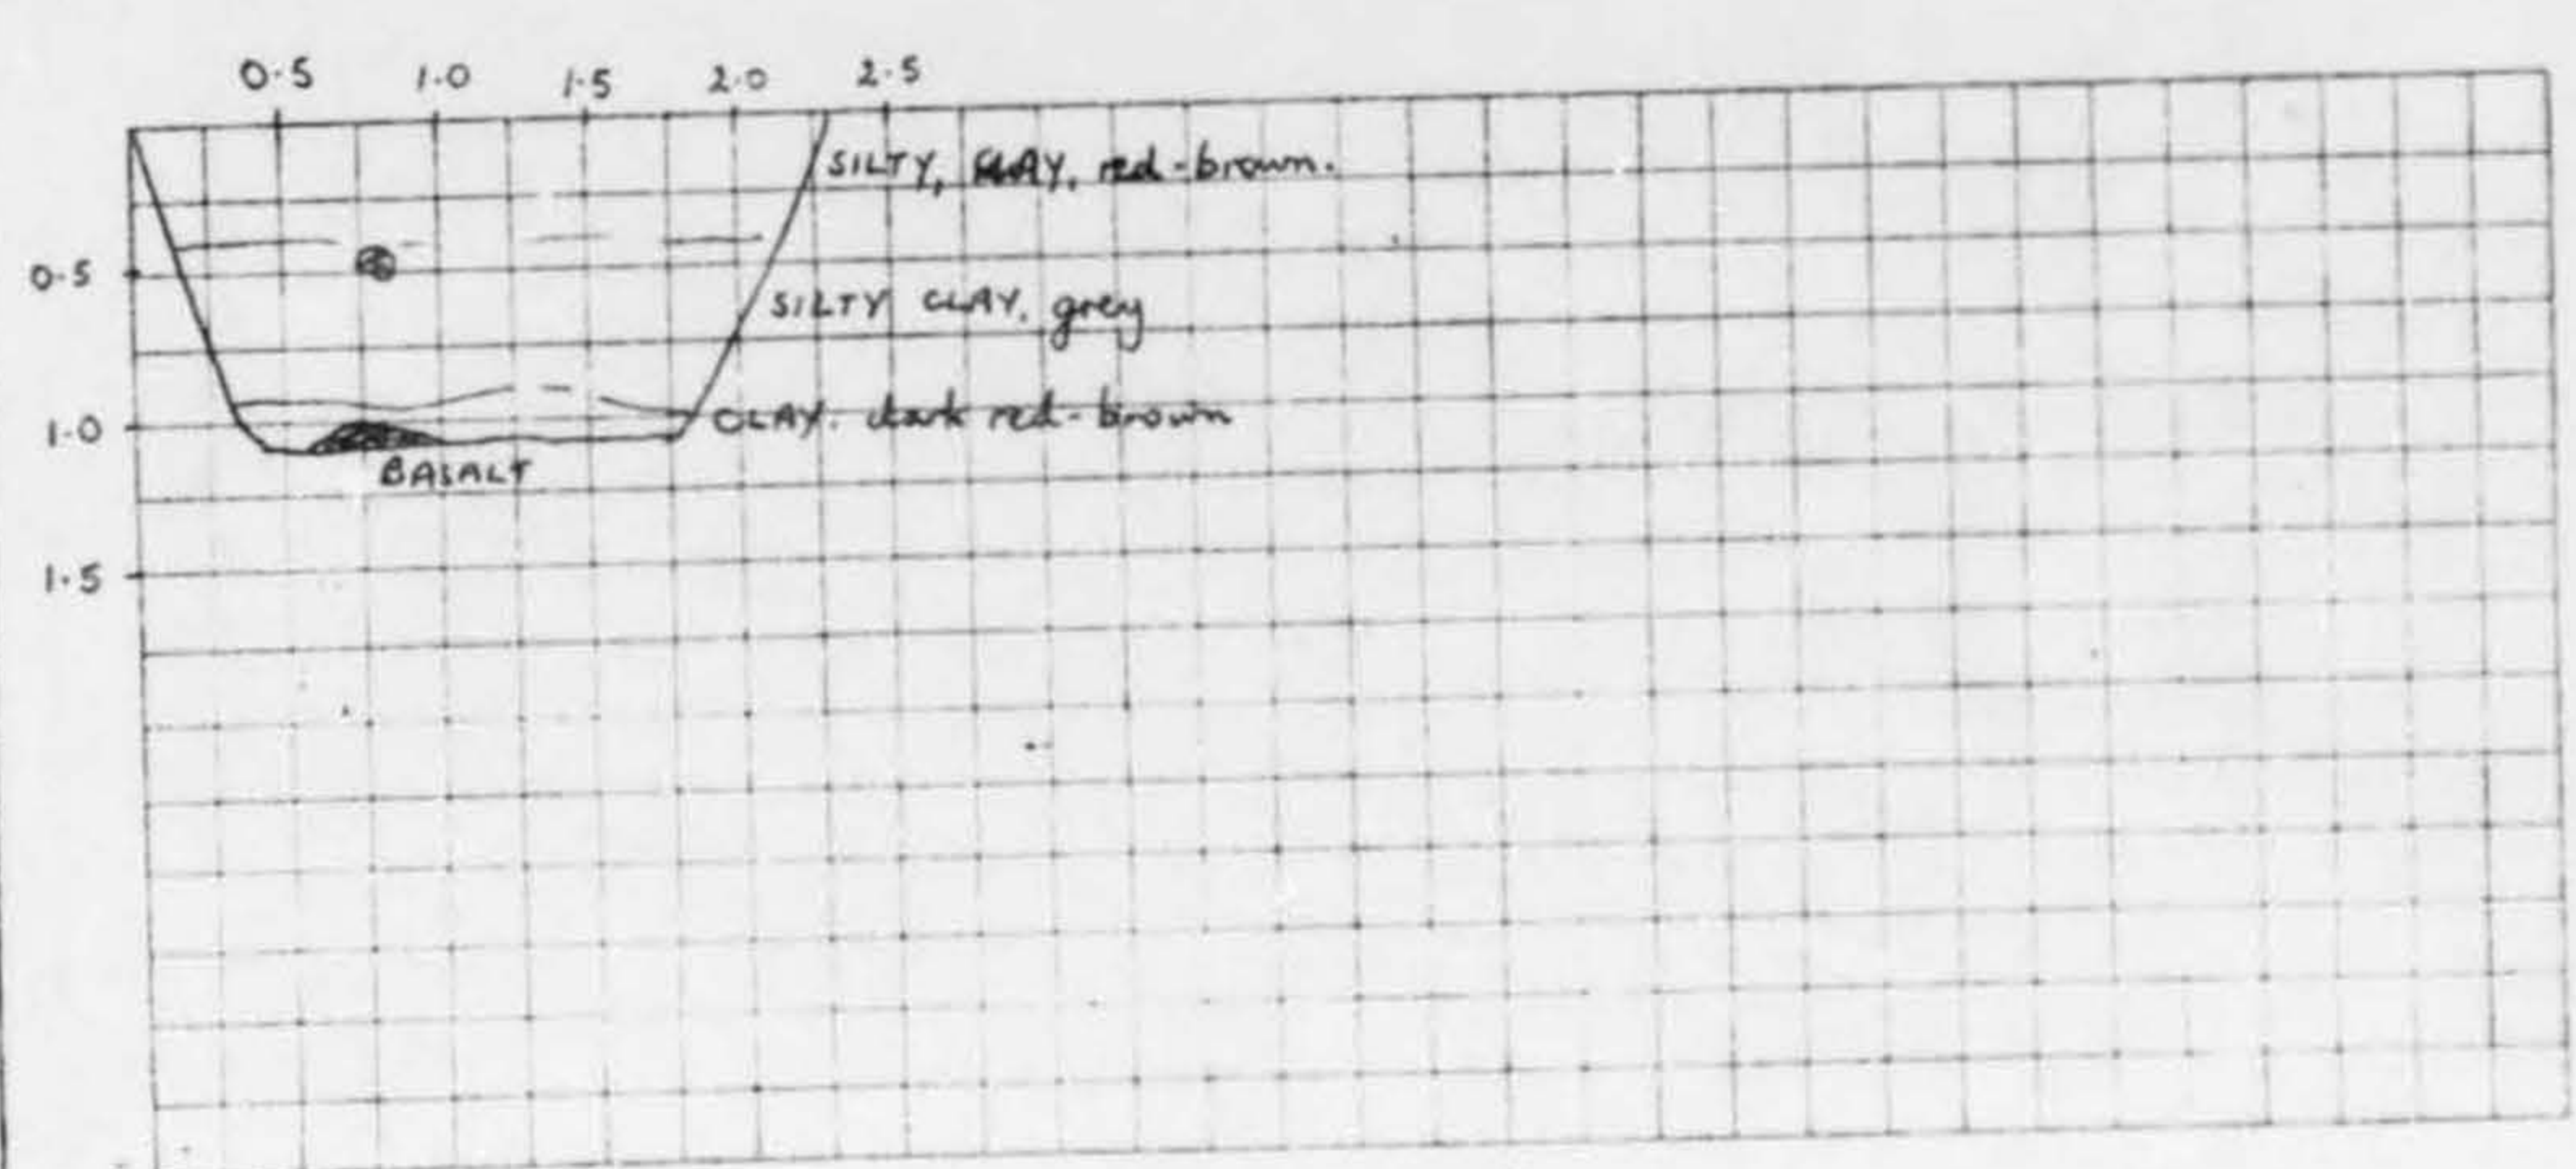 0.5 1.0 1.5 2.0 2.5
SILTY, CLAY, red-brown.
0.5
SILTY CLAY. grey
1.0
CLAY. dark red-brown
BASALT
1.5